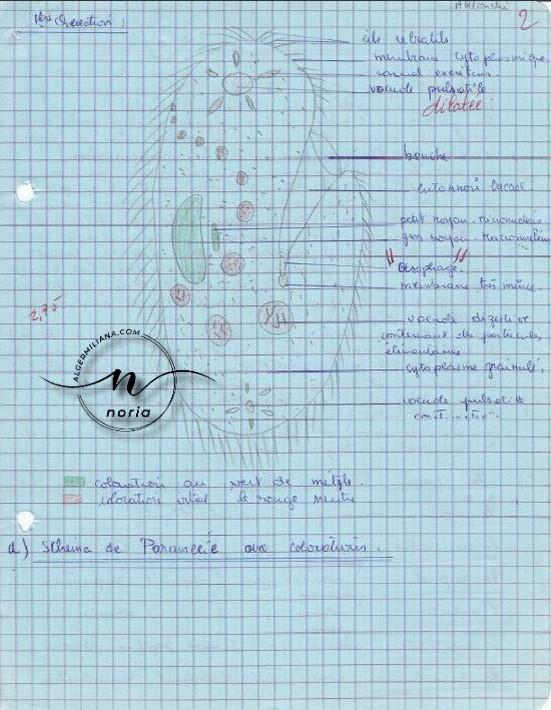 2
1ère Question :
cils vibratils
membrane cytoplasmique.
canal excréteur
vacuole pulsatile
dilatée.
bouche
entonnoir buccal
petit noyau micronucleus
gros noyau Macronucleus
"Oesophage."
membrane très mince.
vacuole digestive
contenant des particules
élémentaires
cytoplasme granulé.
vacuole pulsatile
2,75
ALGERMILIANA.COM
n
noria
coloration au vert de méthyle.
coloration vital le rouge neutre
a) Schéma de Paramécie aux colorations.